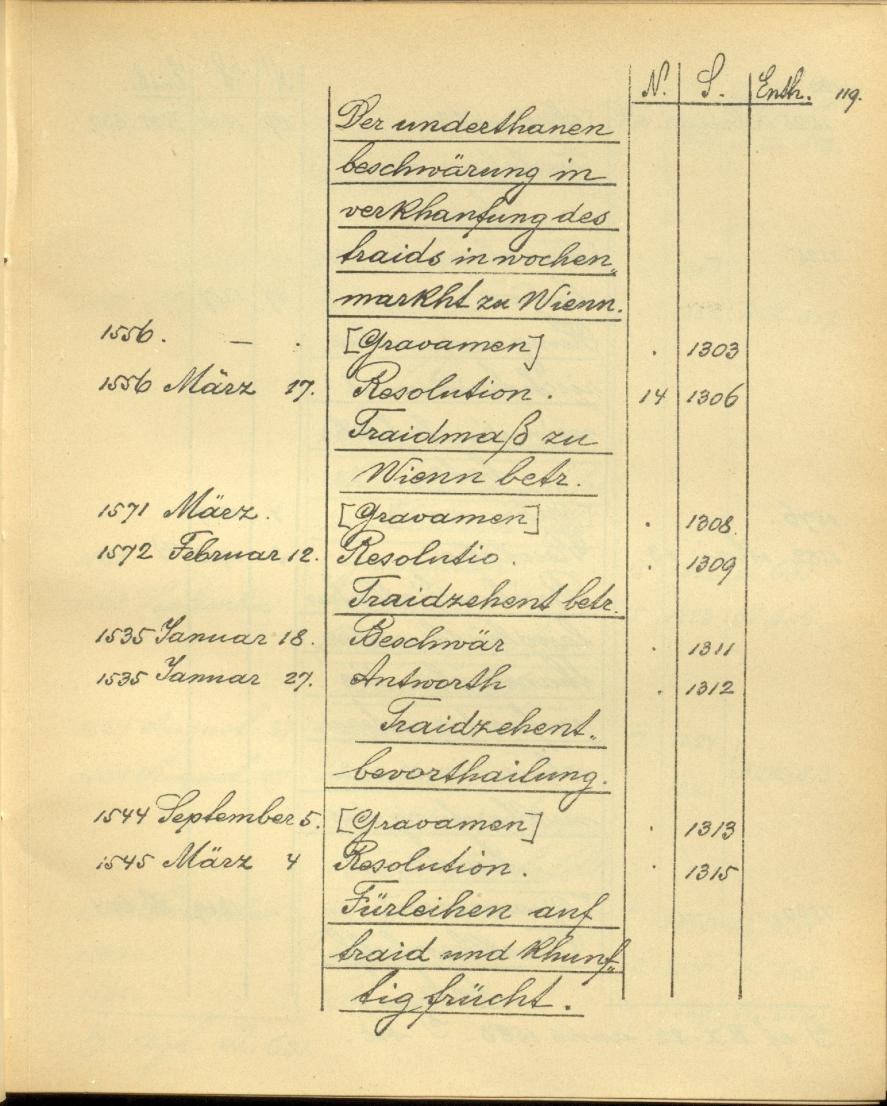 N. S. Enth. 119.
Der underthanen
beschwärung in
verkhanfung des
traids in wochen„
markht zu Wienn.
1556. — . [Gravamen] . 1303
1556 März 17. Resolution. 14 1306
Traidmaß zu
Wienn betr.
1571 März. [Gravamen] . 1308.
1572 Februar 12. Resolutio. . 1309
Traidzehent betr.
1535 Januar 18. Beschwär . 1311
1535 Januar 27. Antworth . 1312
Traidzehent„
bevorthailung.
1544 September 5. [Gravamen] . 1313
1545 März 4 Resolution. . 1315
Fürleihen auf
traid und khunf„
tig frücht.